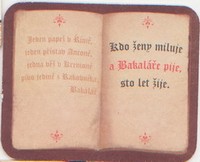 Jeden papež v Římě,
jeden přístav
jedna věž v
pivo jedině z Rakovníka
Bakalář
Kdo ženy miluje
a Bakaláře pije,
sto let žije.